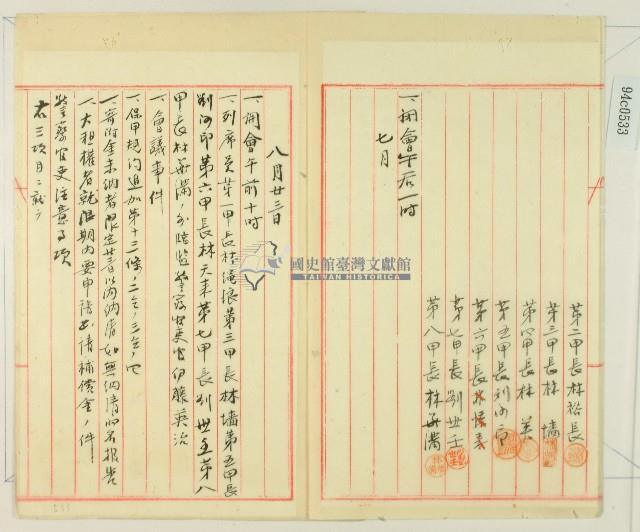 94c0533
第二甲長林裕長
第三甲長林墻
第四甲長林
第五甲長劉
第六甲長林
第七甲長劉世主
第八甲長林再滿
一、開會午后一時
七月
國史館臺灣文獻館
TAIWAN HISTORICA
八月廿三日
一、開會午前十時
一、列席員第一甲長林 第三甲長林墻第五甲長
劉 印第六甲長林天来第七甲長劉世主第八
甲長林再滿、外臨監警察官吏 伊藤英治
一、會議事件
一、保甲規約追加第十三條ノ二仝ノ三仝ノ四
一、寄附金未納者限定廿 日以內納清如無納清 報告
一、大租權者就限期內要申請 請補償金ノ件
警察官吏注意事項
右三項目